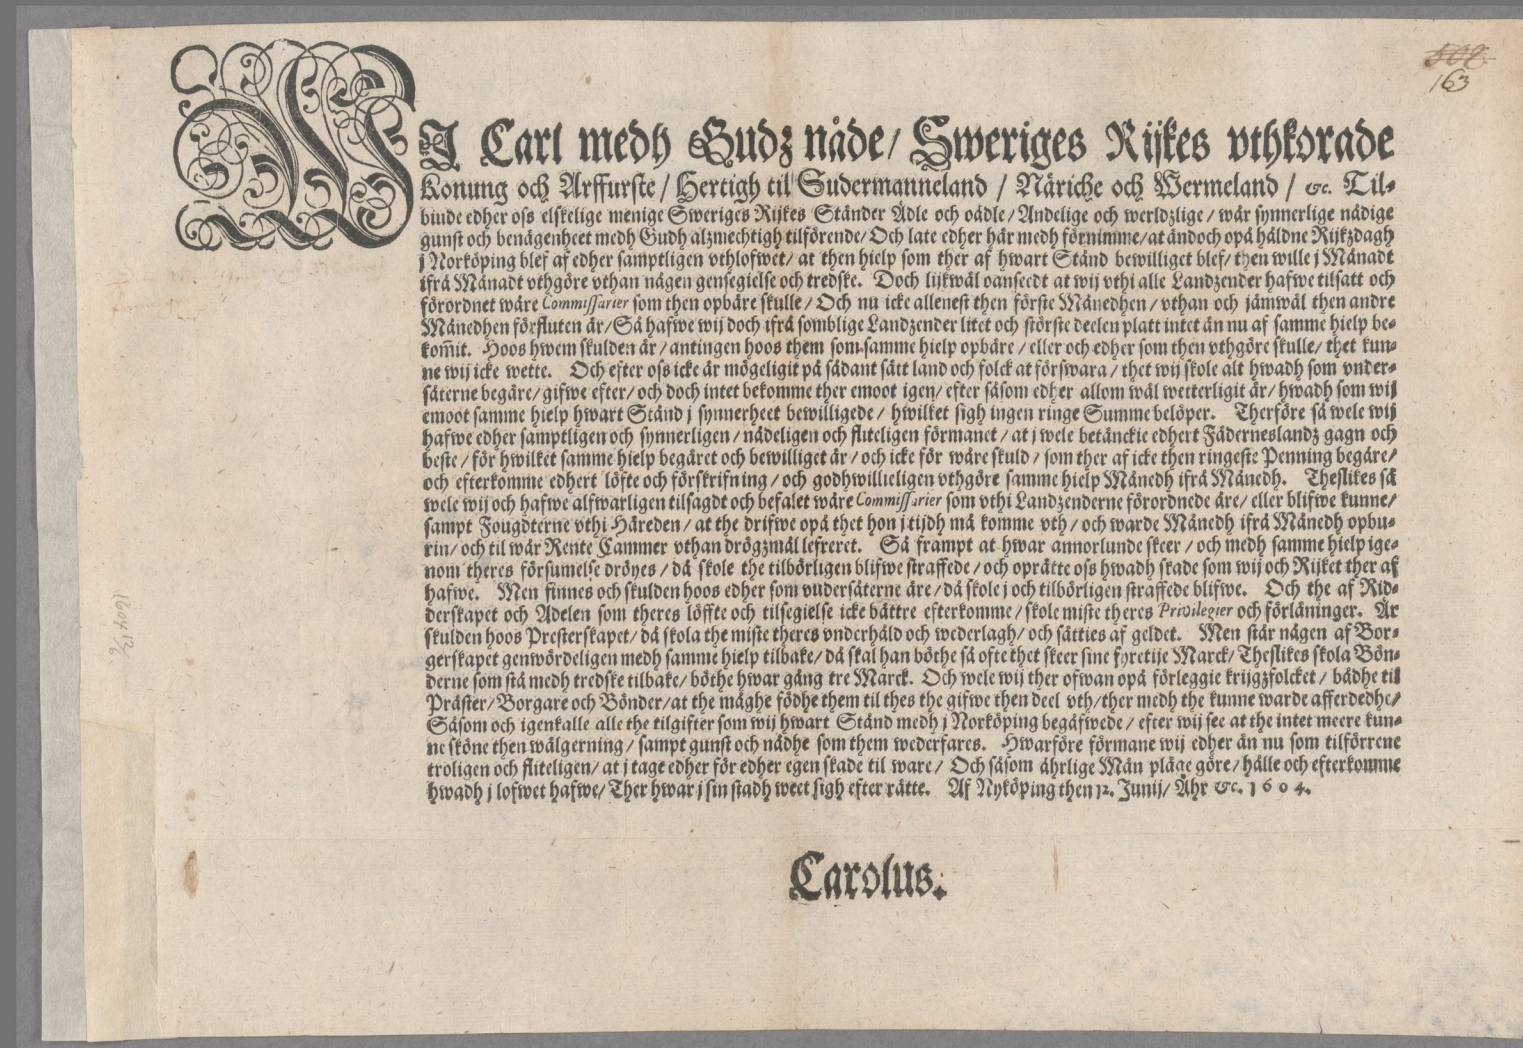 508
163
WJ Carl medh Gudz nåde/ Sweriges Rijkes vthkorade
Konung och Arffurste/ Hertigh til Sudermanneland / Näriche och Wermeland / &c. Til-
biude edher oss elskelige menige Sweriges Rijkes Ständer Ådle och oådle/ Andelige och werldzlige/ wår synnerlige nådige
gunst och benägenheet medh Gudh alzmechtigh tilförende/ Och late edher här medh förnimme/ at ändoch opå håldne Rijkzdagh
j Norköping blef af edher samptligen vthlofwet/ at then hielp som ther af hwart Stånd bewilliget blef/ then wille j Månadt
ifrå Månadt vthgöre vthan någen gensegielse och tredske. Doch lijkwäl oanseedt at wij vthi alle Landzender hafwe tilsatt och
förordnet wåre Commissarier som then opbäre skulle/ Och nu icke allenest then förste Månedhen/ vthan och jämwäl then andre
Månedhen förfluten är/ Så hafwe wij doch ifrå somblige Landzender litet och störste deelen platt intet än nu af samme hielp be-
kom̃it. Hoos hwem skulden är/ antingen hoos them som samme hielp opbäre/ eller och edher som then vthgöre skulle/ thet kun-
ne wij icke wette. Och efter oss icke är mögeligit på sådant sätt land och folck at förswara/ thet wij skole alt hwadh som vnder-
såterne begäre/ gifwe efter/ och doch intet bekomme ther emoot igen/ efter såsom edher allom wäl wetterligit är/ hwadh som wij
emoot samme hielp hwart Stånd j synnerheet bewilligede/ hwilket sigh ingen ringe Summe belöper. Therföre så wele wij
hafwe edher samptligen och synnerligen/ nådeligen och fliteligen förmanet/ at j wele betänckie edhert Fäderneslandz gagn och
beste/ för hwilket samme hielp begäret och bewilliget är/ och icke för wåre skuld/ som ther af icke then ringeste Penning begäre/
och efterkomme edhert löfte och förskrifning/ och godhwillieligen vthgöre samme hielp Månedh ifrå Månedh. Theslikes så
wele wij och hafwe alfwarligen tilsagdt och befalet wåre Commissarier som vthi Landzenderne förordnede äre/ eller blifwe kunne/
sampt Fougdterne vthi Häreden/ at the drifwe opå thet hon j tijdh må komme vth/ och warde Månedh ifrå Månedh opbu-
rin/ och til wår Rente Cammer vthan drögzmål lefreret. Så frampt at hwar annorlunde skeer/ och medh samme hielp ige-
nom theres försumelse dröyes/ då skole the tilbörligen blifwe straffede/ och oprätte oss hwadh skade som wij och Rijket ther af
hafwe. Men finnes och skulden hoos edher som vndersåterne äre/ då skole j och tilbörligen straffede blifwe. Och the af Rid-
derskapet och Adelen som theres löffte och tilsegielse icke bättre efterkomme/ skole miste theres Privilegier och förläninger. Är
skulden hoos Presterskapet/ då skola the miste theres vnderhåld och wederlagh/ och sätties af geldet. Men står någen af Bor-
gerskapet genwördeligen medh samme hielp tilbake/ då skal han böthe så ofte thet skeer sine fyretije Marck/ Theslikes skola Bön-
derne som stå medh tredske tilbake/ böthe hwar gång tre Marck. Och wele wij ther ofwan opå förleggie krijgzfolcket/ bådhe til
Präster/ Borgare och Bönder/ at the måghe födhe them til thes the gifwe then deel vth/ ther medh the kunne warde afferdedhe/
Såsom och igenkalle alle the tilgifter som wij hwart Stånd medh j Norköping begåfwede/ efter wij see at the intet meere kun-
ne sköne then wälgerning/ sampt gunst och nådhe som them wederfares. Hwarföre förmane wij edher än nu som tilförrene
troligen och fliteligen/ at j tage edher för edher egen skade til ware/ Och såsom ährlige Män pläge göre/ hålle och efterkomme
hwadh j lofwet hafwe/ Ther hwar j sin stadh weet sigh efter rätte. Af Nyköping then 12. Junij/ Åhr &c. 1604.
Carolus.
1604 12/6.